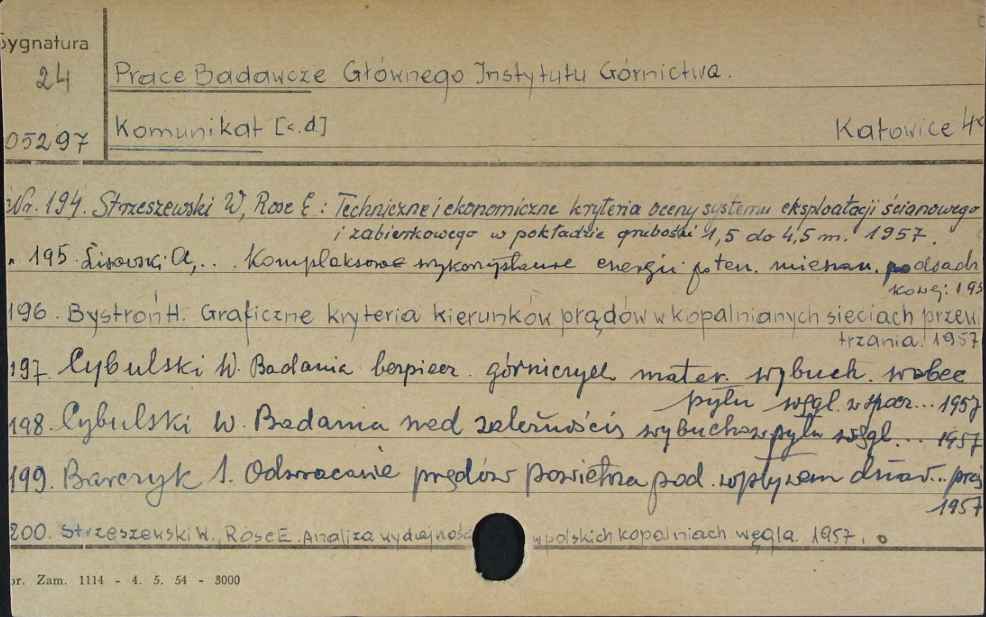 Sygnatura
24
05297
Prace Badawcze Głównego Instytutu Górnictwa.
Komunikat [c.d.]
Katowice 4
Nr. 194. Strzeszewski W, Rose E: Techniczne i ekonomiczne kryteria oceny systemu eksploatacji ścianowego
i zabierkowego w pokładzie grubości 1,5 do 4,5 m. 1957.
" 195. Lisowski A,.. Kompleksowe wykorzystanie energii poten. mieszan. podsadz
kowej: 195
196. Bystroń H. Graficzne kryteria kierunków prądów w kopalnianych sieciach przewie
trzania. 1957
197. Cybulski W. Badania bezpiecz. górniczych mater. wybuch. wobec
pyłu węgl. w 1957
198. Cybulski W. Badania nad zależnością wybuchów pyłu węgl... 1957
199. Barczyk J. Odwracanie prądów powietrza pod. wpływem dział...
1957
200. Strzeszewski W., Rose E. Analiza wydajności w polskich kopalniach węgla 1957.
or. Zam. 1114 - 4. 5. 54 - 3000